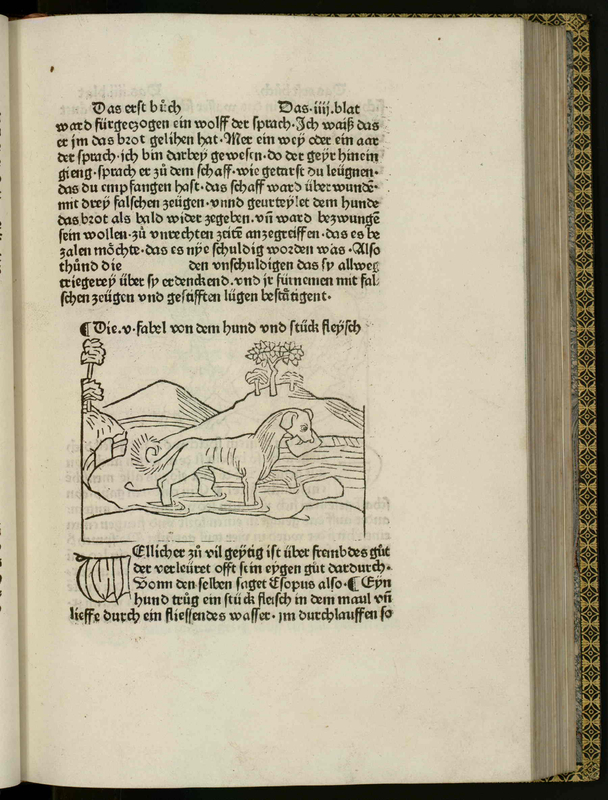 Das erst bůch Das .iiij. blat
ward fürgeczogen ein wolff der sprach·Jch waiß das
er jm das brot gelihen hat·Mer ein wey oder ein aar
der sprach·ich bin darbey gewesen·do der geyr hinein
gieng·sprach er zů dem schaff·wie getarst du leügnen·
das du empfangen hast·das schaff ward über wundē·
mit drey falschen zeügen·vnnd geurteylet dem hunde
das brot als bald wider zegeben·vn̄ ward bezwungē
sein wollen·zů vnrechten zeitē anzegreiffen·das es be
zalen möchte·das es nye schuldig worden was·Also
thůnd die den vnschuldigen das sy allweg
triegerey über sy erdenckend·vnd jr fürnemen mit fal
schen zeügen vnd gestifften lügen bestätigent·
¶ Die·v·fabel von dem hund vnd stück fleysch
WEllicher zů vil geytig ist über frembdes gůt
der verleüret offt sein eygen gůt dardurch·
Vonn den selben saget Esopus also·¶ Eyn
hund trůg ein stück fleisch in dem maul vn̄
lieffe durch ein fliessendes wasser·jm durchlauffen so